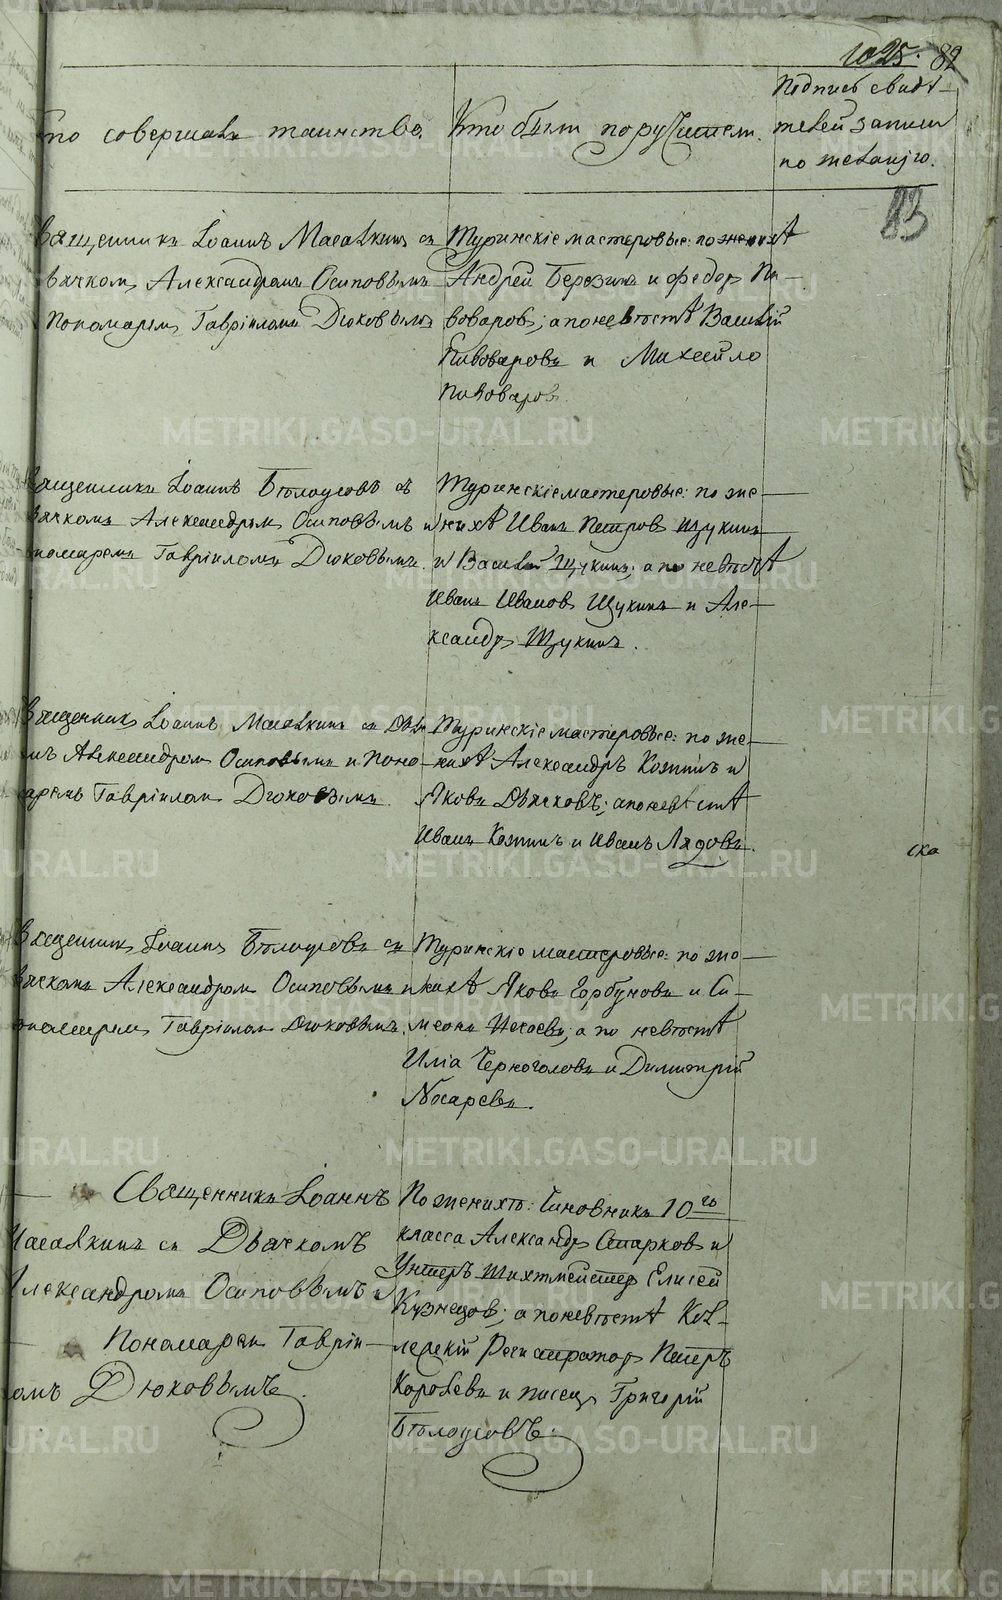 1025. 82
83
Кто совершалъ таинство.
Кто были поручители.
Подпись свидѣ-
телей записи
по желанiю.
Священникъ Iоаннъ Масалкинъ съ
Дьячкомъ Александромъ Осиповымъ
Пономаремъ Гаврiиломъ Дюковымъ
Туринскiе мастеровые: по женихѣ
Андрей Березинъ и Федоръ Пи-
воваровъ; а по невѣстѣ Василiй
Пивоваровъ и Михайло
Пивоваровъ.
Священникъ Iоаннъ Бѣлоусовъ съ
Дьячкомъ Александромъ Осиповымъ и
Пономаремъ Гаврiиломъ Дюковымъ.
Туринскiе мастеровые: по же-
нихѣ Иванъ Петровъ Щукинъ
и Василiй Щукинъ; а по невѣстѣ
Иванъ Ивановъ Щукинъ и Але-
ксандръ Щукинъ.
Священникъ Iоаннъ Масалкинъ съ Дьячко-
мъ Александромъ Осиповымъ и Поно-
маремъ Гаврiиломъ Дюковымъ.
Туринскiе мастеровые: по же-
нихѣ Александръ Козминъ и
Яковъ; а по невѣстѣ
Иванъ Козминъ и Иванъ Лядовъ.
Священникъ Iоаннъ Бѣлоусовъ съ
Дьячкомъ Александромъ Осиповымъ и
Пономаремъ Гаврiиломъ Дюковымъ.
Туринскiе мастеровые: по же-
нихѣ Яковъ Горбуновъ и Си-
меонъ; а по невѣстѣ
Илiа Черноголовъ и Димитрiй
Носаревъ.
Священникъ Iоаннъ
Масалкинъ съ Дьячкомъ
Александромъ Осиповымъ и
Пономаремъ Гаврiи-
ломъ Дюковымъ.
По женихѣ: Чиновникъ 10го
класса Александръ Старковъ и
Унтеръ Шихтмейстеръ Елисей
Кузнецовъ; а по невѣстѣ Кол-
лежскiй Регистраторъ Петръ
Коробевъ и писецъ Григорiй
Бѣлоусовъ.
METRIKI.GASO-URAL.RU